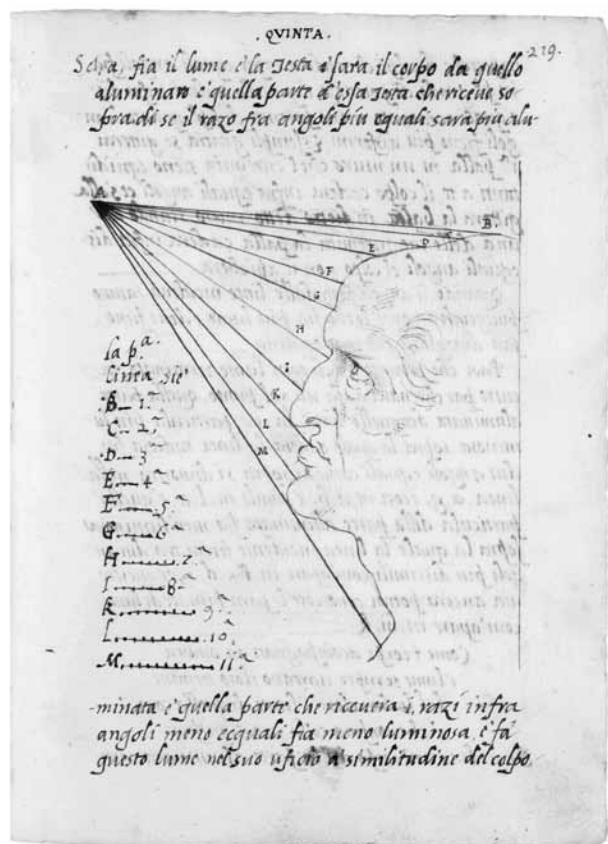 . QVINTA .
219.
Setra, fia il lume e la testa i sara il corpo da quello
aluminato e quella parte d essa testa che riceve so
pra di se il razo fra angoli piu equali sara piu alu
B
D
E
F
G
H
I
K
L
M
la p.a
linea die
B— 1.a
C— 2.a
D— 3
E— 4.a
F— 5.a
G— 6.a
H— 7.a
I— 8.a
K— 9.a
L— 10.a
M— 11.a
-minata e quella parte che ricevera i razi infra
angoli meno ecquali fia meno luminosa, e fa
questo lume nel suo uficio a similitudine del colpo